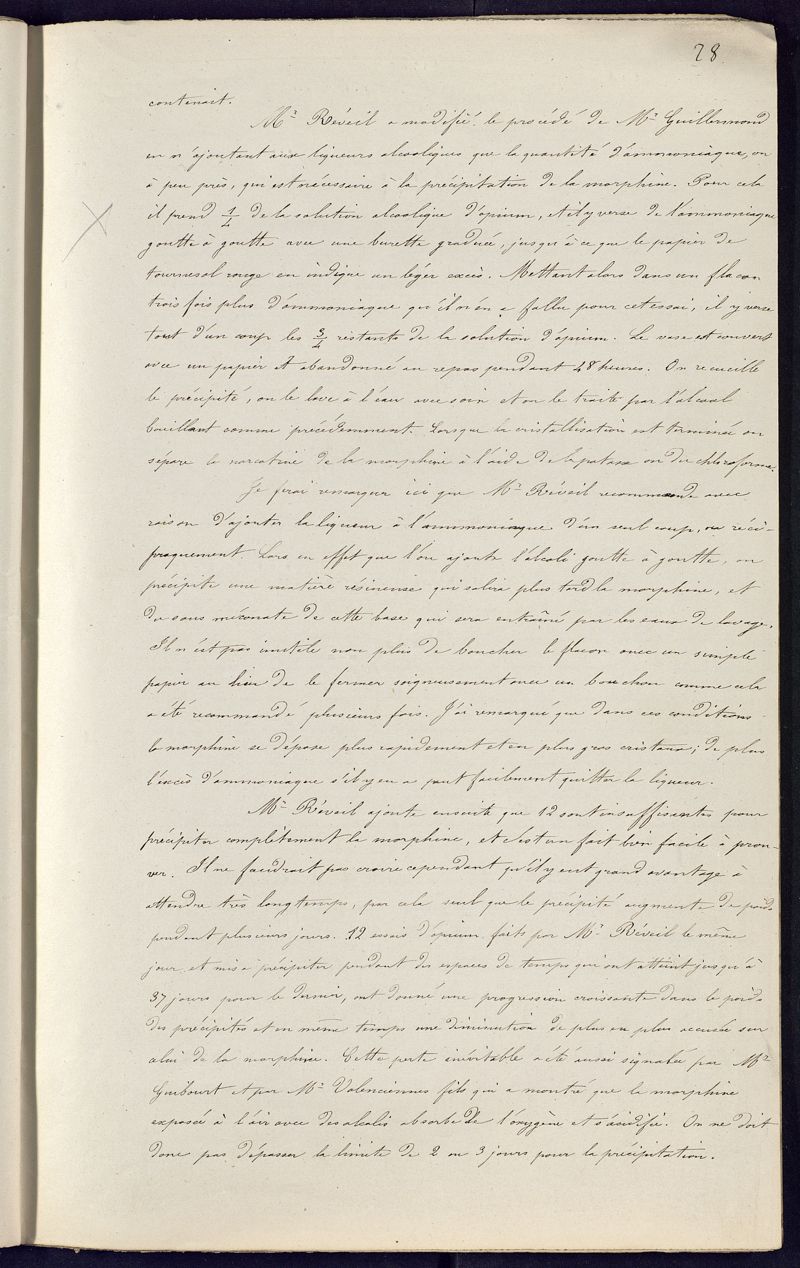 28
contenait.
Mr Réveil a modifié le procédé de Mr Guillermond
en n'ajoutant aux liqueurs alcooliques que la quantité d'ammoniaque, ou
à peu près, qui est nécessaire à la précipitation de la morphine. Pour cela
il prend 1/4 de la solution alcoolique d'opium, et il y verse de l'ammoniaque
goutte à goutte avec une burette graduée, jusqu'à ce que le papier de
tournesol rouge en indique un léger excès. Mettant alors dans un flacon
trois fois plus d'ammoniaque qu'il n'en a fallu pour cet essai, il y verse
tout d'un coup les 3/4 restants de la solution d'opium. Le vase est couvert
avec un papier et abandonné au repos pendant 48 heures. On recueille
le précipité, on le lave à l'eau avec soin et on le traite par l'alcool
bouillant comme précédemment. Lorsque la cristallisation est terminée on
sépare la narcotine de la morphine à l'aide de la potasse ou du chloroforme.
Je ferai remarquer ici que Mr Réveil recommande avec
raison d'ajouter la liqueur à l'ammoniaque d'un seul coup, ou réci-
proquement. Lors en effet que l'on ajoute l'alcali goutte à goutte, on
précipite une matière résineuse qui salira plus tard la morphine, et
du sous méconate de cette base qui sera entraîné par les eaux de lavage.
Il n'est pas inutile non plus de boucher le flacon avec un simple
papier au lieu de le fermer soigneusement avec un bouchon comme cela
a été recommandé plusieurs fois. J'ai remarqué que dans ces conditions
la morphine se dépose plus rapidement et en plus gros cristaux; de plus
l'excès d'ammoniaque s'il y en a peut facilement quitter la liqueur.
Mr Réveil ajoute ensuite que 12 sont insuffisantes pour
précipiter complètement la morphine, et c'est un fait bien facile à prou-
ver. Il ne faudrait pas croire cependant qu'il y eut grand avantage à
attendre très longtemps, par cela seul que le précipité augmente de poids
pendant plusieurs jours. 12 essais d'opium faits par Mr Réveil le même
jour et mis à précipiter pendant des espaces de temps qui ont atteint jusqu'à
37 jours pour le dernier, ont donné une progression croissante dans le poids
des précipités et en même temps une diminution de plus en plus accusée sur
celui de la morphine. Cette perte inévitable a été aussi signalée par Mr
Guibourt et par Mr Valenciennes fils qui a montré que la morphine
exposée à l'air avec des alcalis absorbe de l'oxygène et s'acidifie. On ne doit
donc pas dépasser la limite de 2 ou 3 jours pour la précipitation.